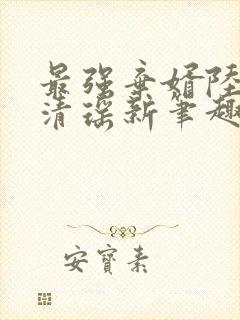 最强弃婿陆
清瑶新笔趣
安宝素